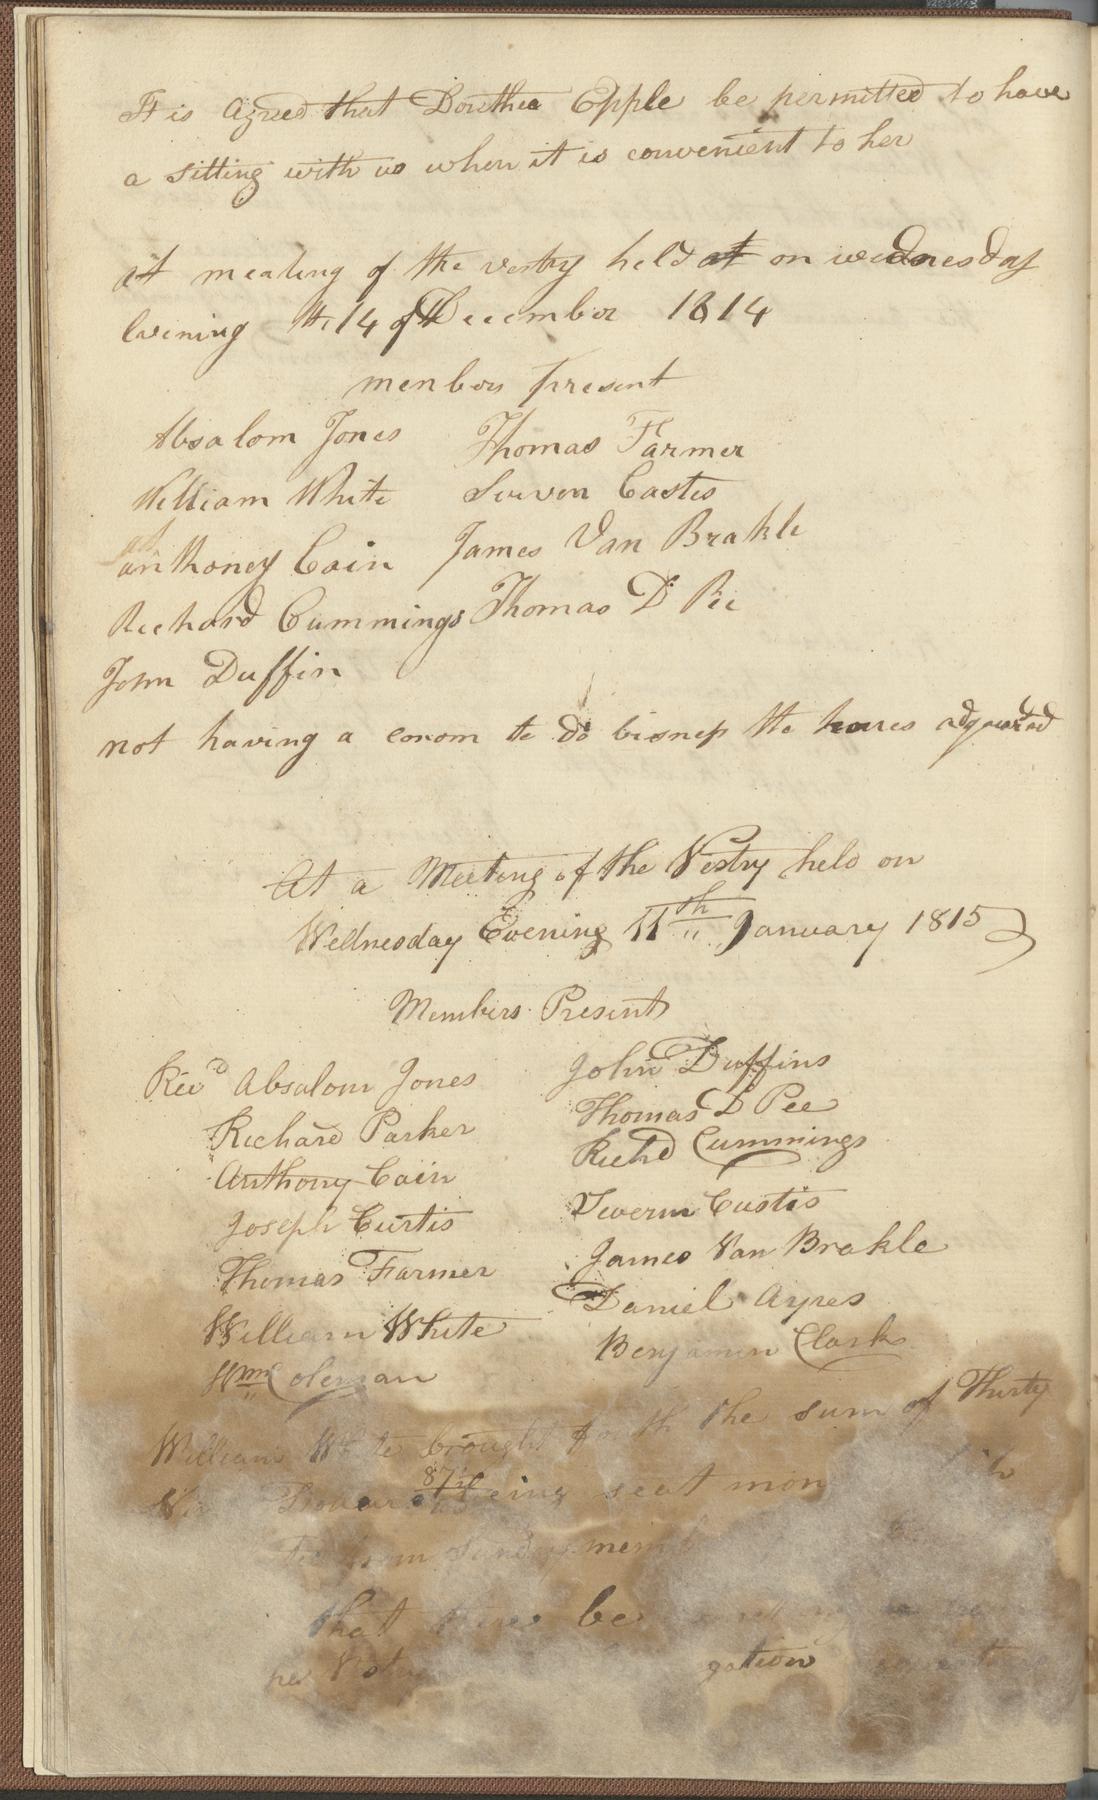 It is Agreed that Dorothea Epple be permitted to have
a sitting with us when it is convenient to her
at meating of the vestry held at on wednesday
Evening the 14 of December 1814
menbors present
Absalom Jones Thomas Farmer
William White Seuven Castes
anthoney Cain James Van Brakle
Richard Cummings Thomas D Pee
John Duffin
not having a corom to do bisness the houes adgourned
At a Meeting of the Vestry held on
Wednesday Evening 11th January 1815
Members Present
Revd Absalom Jones John Duffins
Richard Parker Thomas D Pee
Anthony Cain Richd Cummings
Joseph Curtis Severn Custis
Thomas Farmer James Van Brakle
William White Daniel Ayres
Wm Coleman Benjamin Clark
William White brought forth the sum of Thirty
87½ being seat mon
from sundry memb
that there be
per Vestry gation